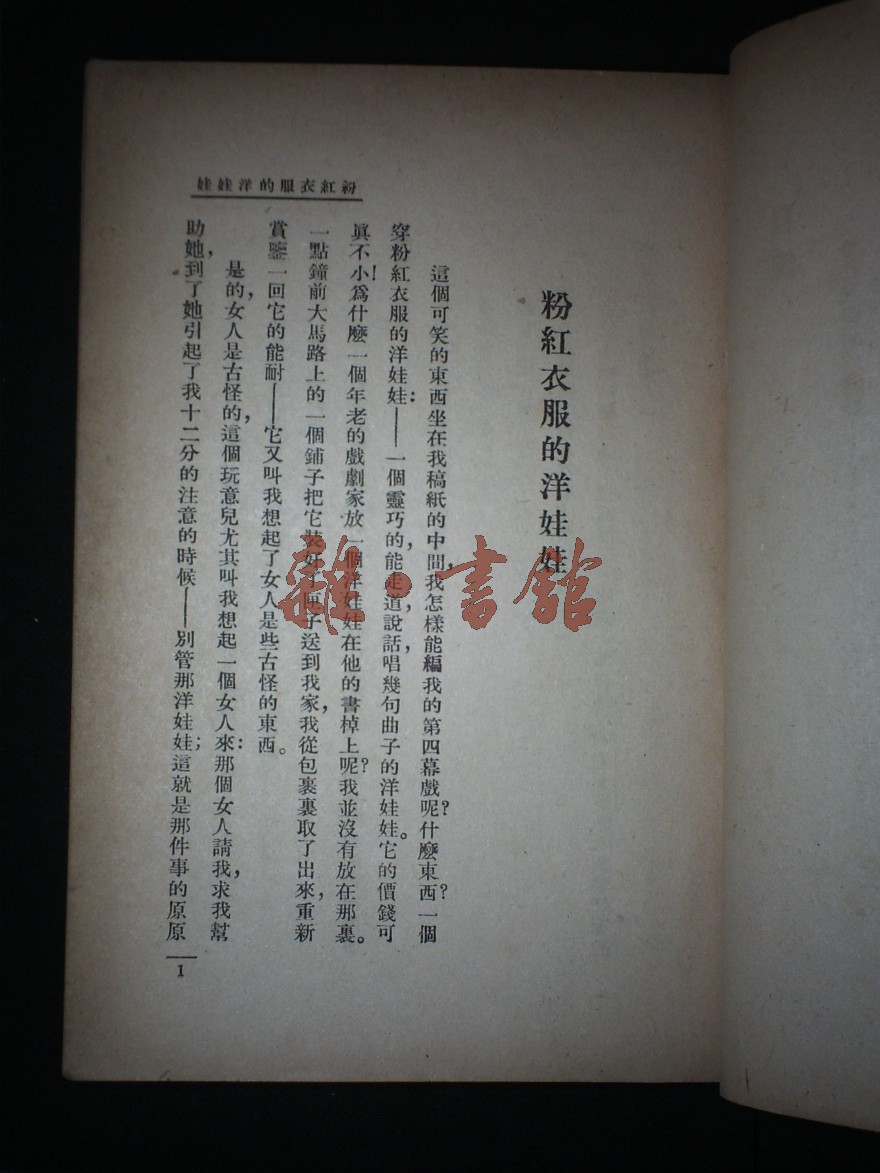 粉紅衣服的洋娃娃
粉紅衣服的洋娃娃
這個可笑的東西坐在我稿紙的中間，我怎樣能編我的第四幕戲呢？什麼東西？一個
穿粉紅衣服的洋娃娃：——一個靈巧的，能走道，說話，唱幾句曲子的洋娃娃。它的價錢可
眞不小！爲什麼一個年老的戲劇家放一個洋娃娃在他的書棹上呢？我並沒有放在那裏。
一點鐘前大馬路上的一個鋪子把它裝好了匣子送到我家，我從包裹裏取了出來，重新
賞鑒一回它的能耐——它又叫我想起了女人是些古怪的東西。
是的，女人是古怪的，這個玩意兒尤其叫我想起一個女人來：那個女人請我，求我幫
助她，到了她引起了我十二分的注意的時候——別管那洋娃娃；這就是那件事的原原
1
雜·書館